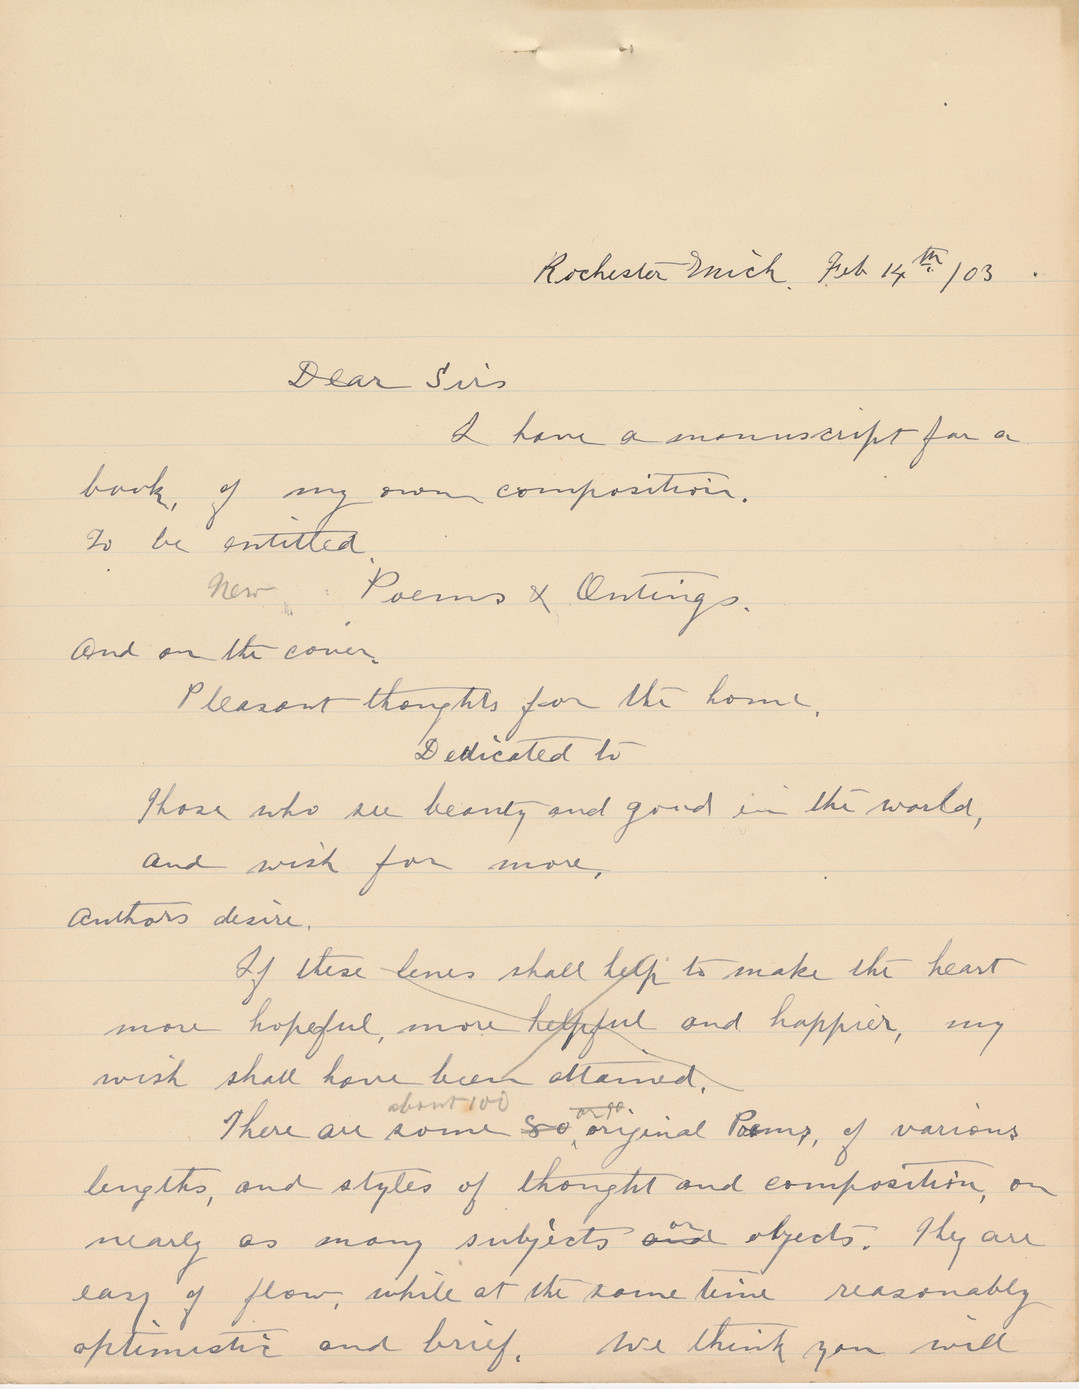 Rochester Mich. Feb 14th /03.
Dear Sirs
I have a manuscript for a
book, of my own composition.
To be entitled.
New Poems & Outings.
And on the cover.
Pleasant thoughts for the home.
Dedicated to
Those who see beauty and good in the world,
and wish for more,
Authors desire.
If these lines shall help to make the heart
more hopeful, more helpful and happier, my
wish shall have been attained.
about 100
There are some 80, original Poems, of various
lengths, and styles of thought and composition, on
or
nearly as many subjects and objects. They are
easy of flow, while at the same time reasonably
optimistic and brief. We think you will